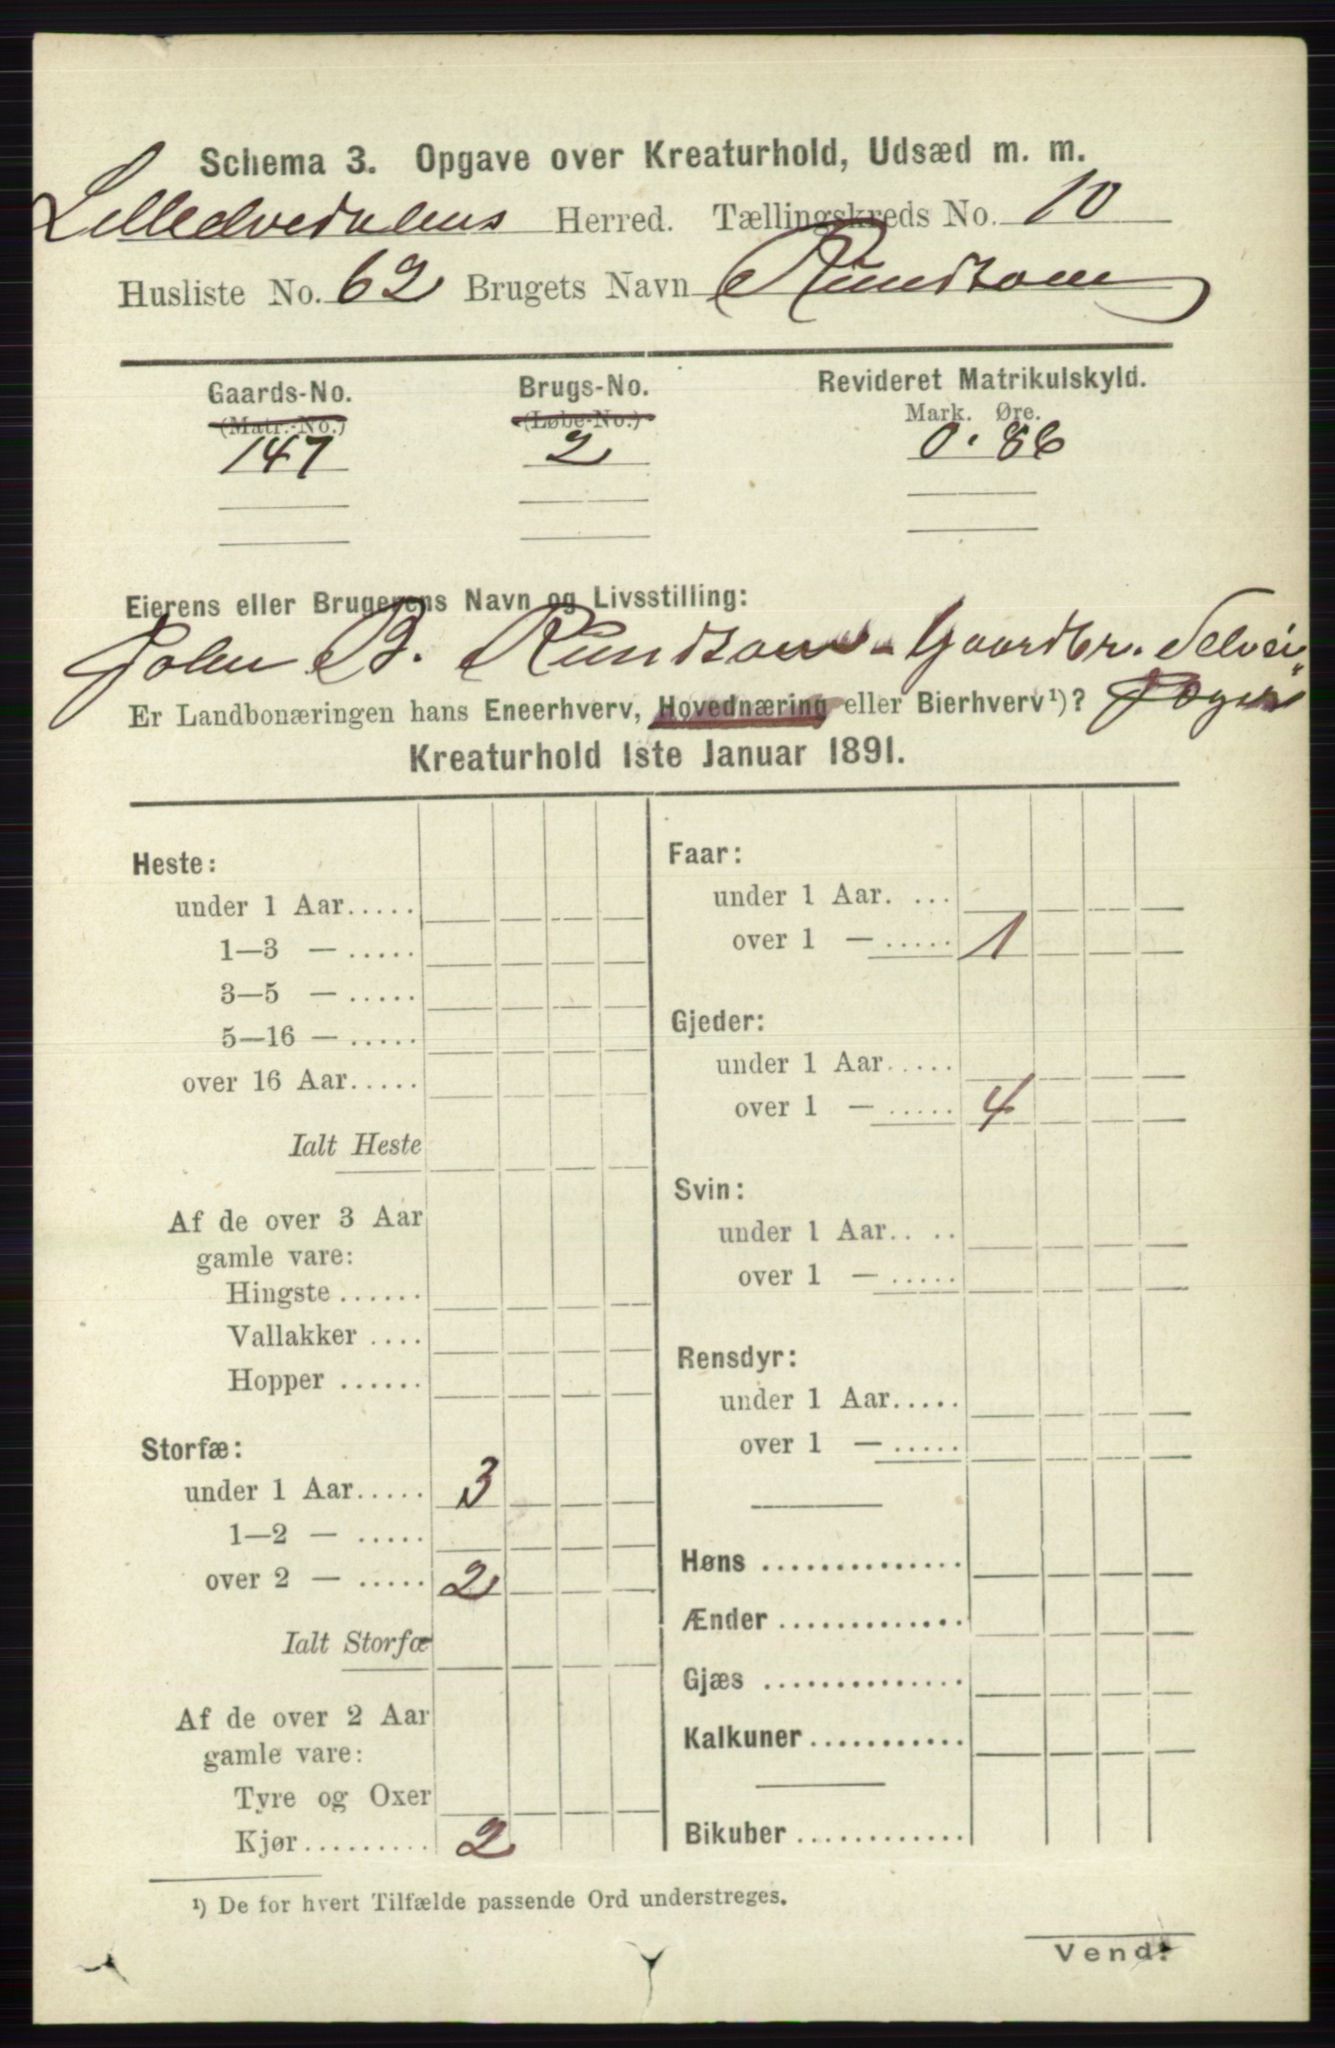 Schema 3. Opgave over Kreaturhold, Udsæd m. m.
Herred. Tællingskreds No. 10
Husliste No. 62 Brugets Navn Rundtom
Gaards-No. Brugs-No. Revideret Matrikulskyld.
(Matr.-No.) (Løbe-No.) Mark. Øre.
147 2 0.86
Eierens eller Brugerens Navn og Livsstilling:
John B. Rundtom Gaardbr. Selvei
Er Landbonæringen hans Eneerhverv, Hovednæring eller Bierhverv¹)?
Kreaturhold 1ste Januar 1891.
Heste:
under 1 Aar.....
1—3 — .....
3—5 — .....
5—16 — .....
over 16 Aar.....
Ialt Heste
Af de over 3 Aar
gamle vare:
Hingste ......
Vallakker ....
Hopper ......
Storfæ:
under 1 Aar..... 3
1—2 — .....
over 2 — ..... 2
Ialt Storfæ
Af de over 2 Aar
gamle vare:
Tyre og Oxer
Kjør......... 2
Faar:
under 1 Aar. ...
over 1 — ..... 1
Gjeder:
under 1 Aar.....
over 1 — ..... 4
Svin:
under 1 Aar.. ..
over 1 — .....
Rensdyr:
under 1 Aar.....
over 1 — .....
Høns ..............
Ænder .............
Gjæs ..............
Kalkuner ...........
Bikuber ............
¹) De for hvert Tilfælde passende Ord understreges.
Vend.